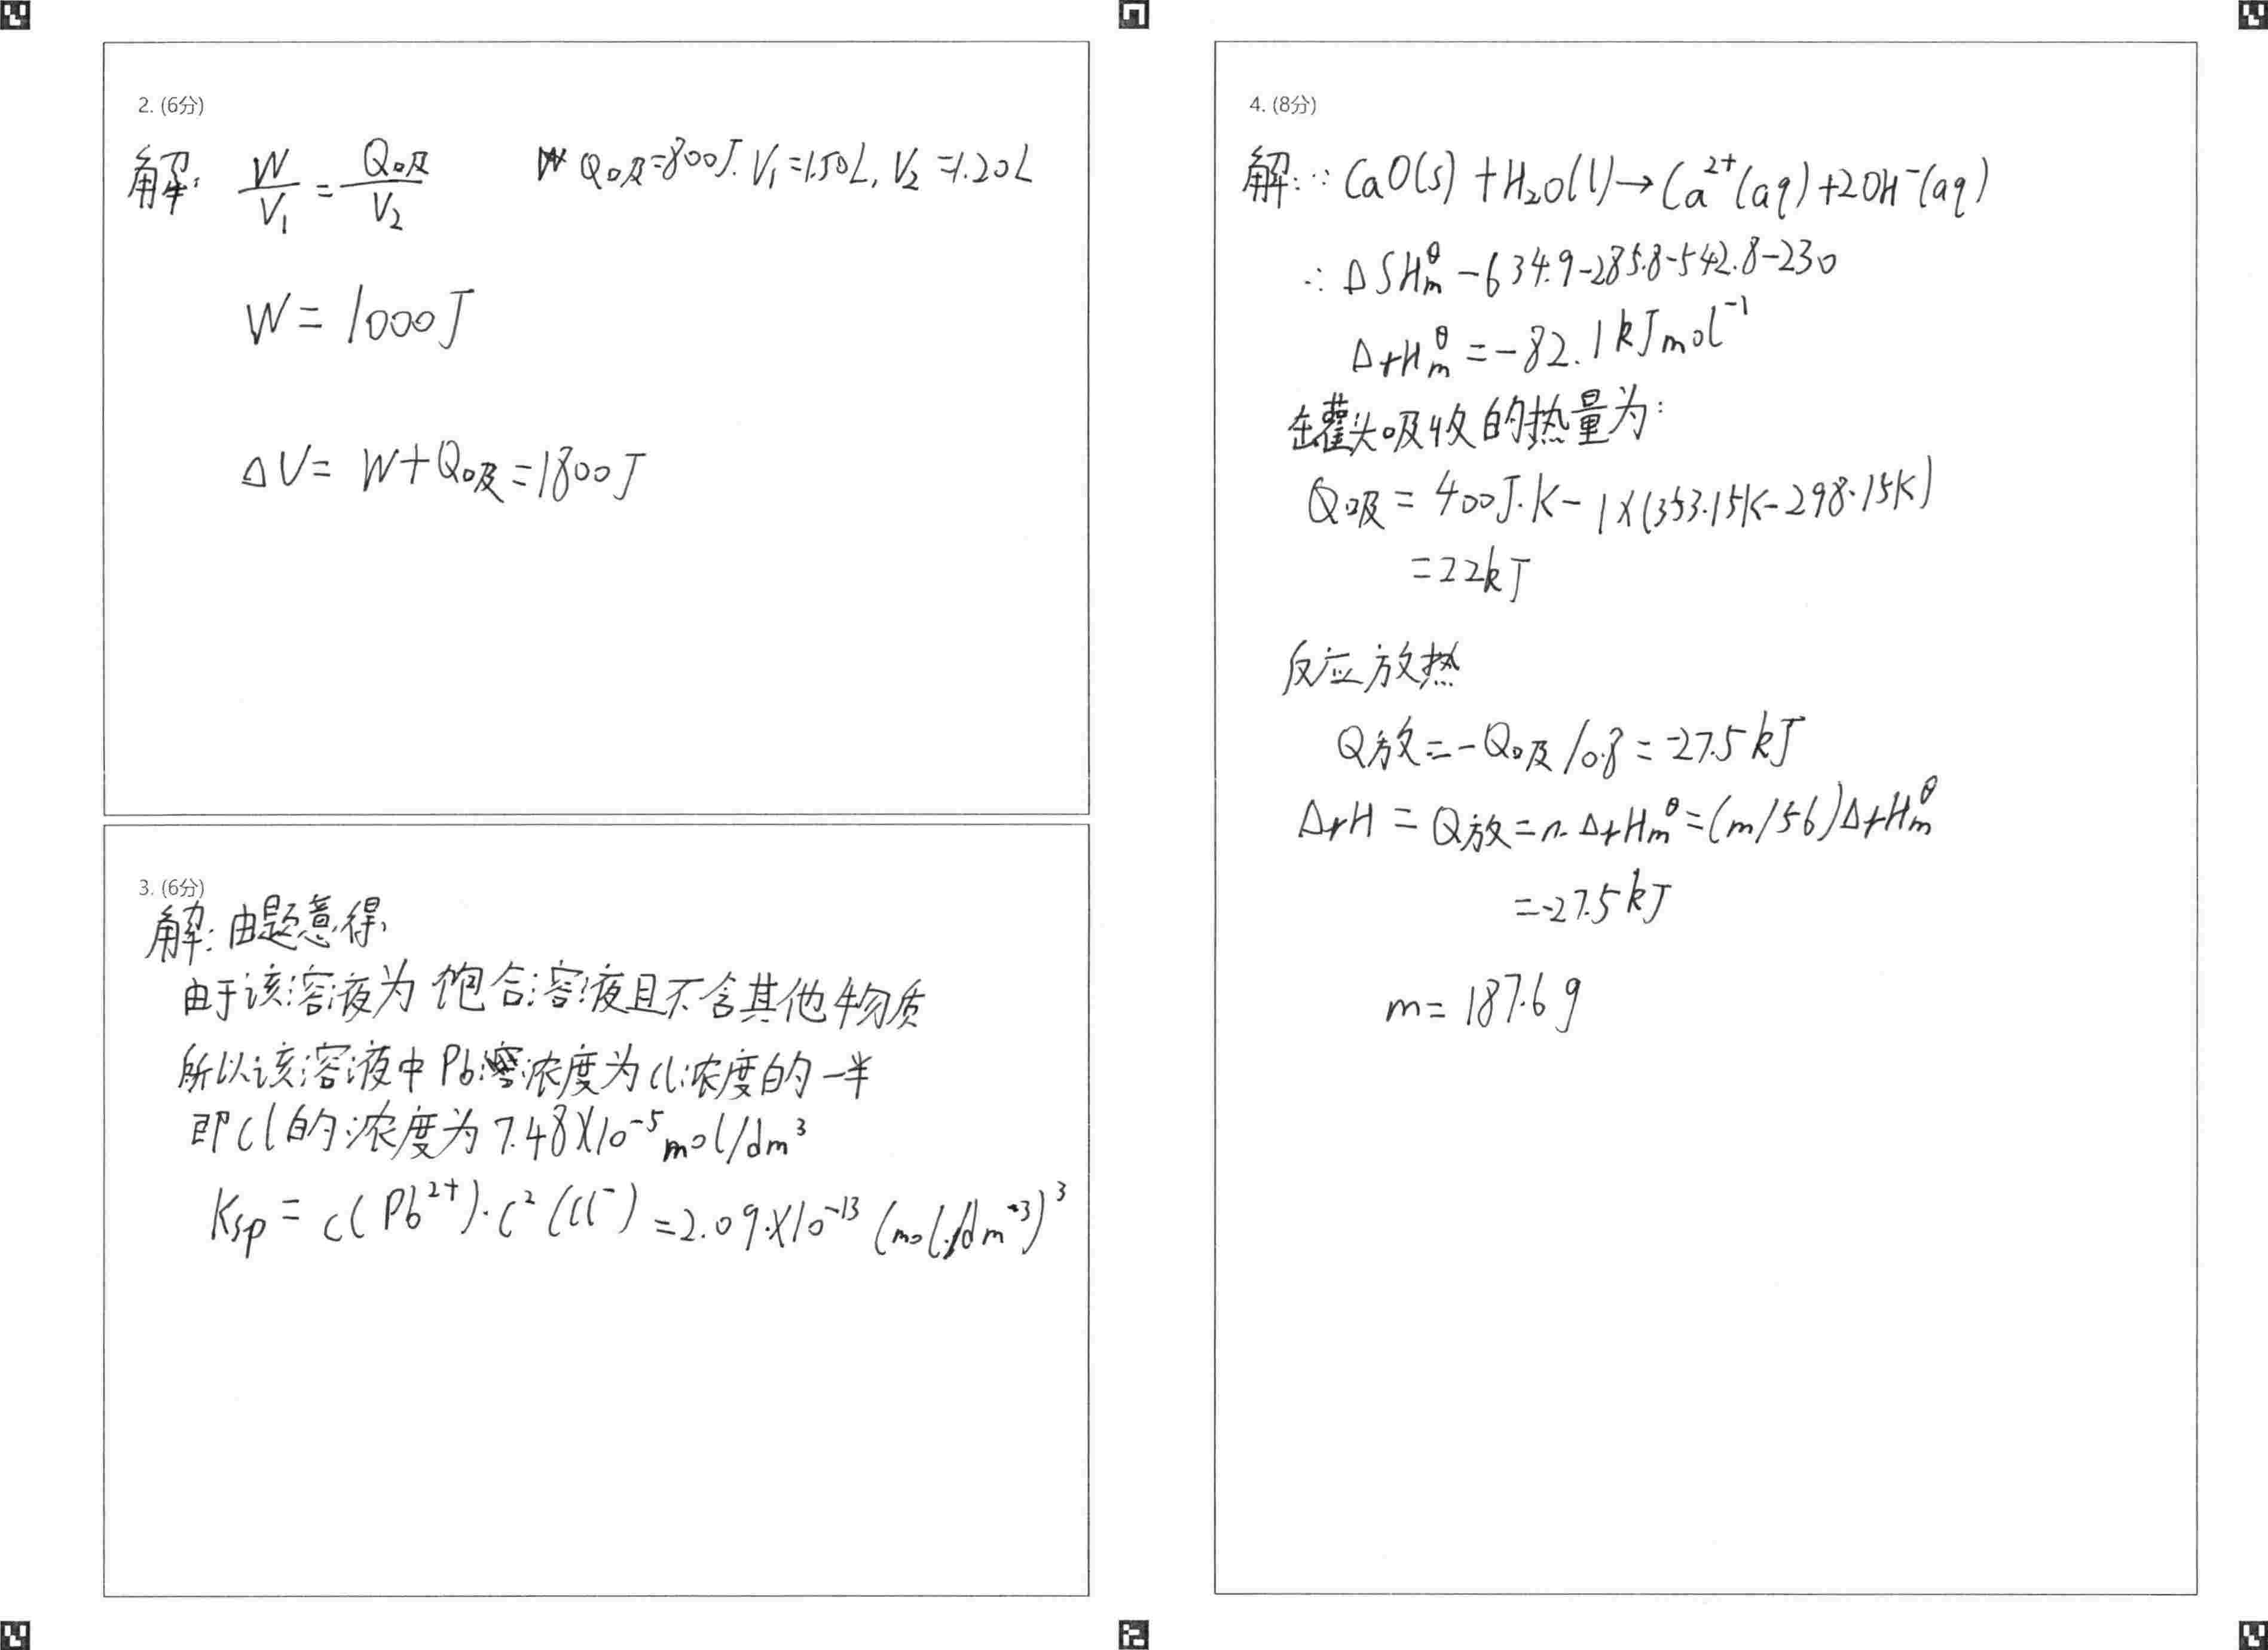 2. (6分)
解: W/V₁ = Q吸/V₂ Q吸=800J. V₁=1.50L, V₂=1.20L
W = 1000J
ΔU = W+Q吸=1800J
3. (6分)
解: 由题意得,
由于该溶液为饱合溶液且不含其他物质
所以该溶液中Pb浓度为Cl浓度的一半
即Cl的浓度为7.48×10⁻⁵mol/dm³
Ksp = c(Pb²⁺)·c²(Cl⁻) =2.09×10⁻¹³ (mol/dm⁻³)³
4. (8分)
解: ∵ CaO(s) + H₂O(l)→Ca²⁺(aq)+2OH⁻(aq)
∴ ΔSHmθ -634.9-285.8-542.8-230
ΔrHmθ =-82.1kJmol⁻¹
罐头吸收的热量为:
Q吸 = 400J.K-1×(353.15K-298.15K)
=22kJ
反应放热
Q放=-Q吸/0.8=-27.5kJ
ΔrH = Q放=n·ΔrHmθ=(m/56)ΔrHmθ
=-27.5kJ
m= 187.6g